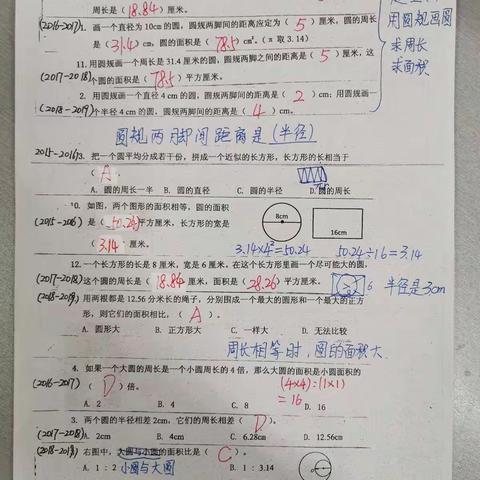 周长是（18.84）厘米。
用圆规画圆
(2016-2017)1. 画一个直径为10cm的圆，圆规两脚间的距离应定为（5）厘米，圆的周长
求周长
是（31.4）cm，圆的面积是（78.5）cm²。(π取3.14)
求面积
11. 用圆规画一个周长是31.4厘米的圆，圆规两脚之间的距离是（5）厘米，这
(2017-2018)个圆的面积是（78.5）平方厘米。
2. 用圆规画一个直径4cm的圆，圆规两脚间的距离是（2）cm；用圆规画一
(2018-2019)个半径4cm的圆，圆规两脚间的距离是（4）cm。
圆规两脚间距离是（半径）
2015-2016)3. 把一个圆平均分成若干份，拼成一个近似的长方形，长方形的长相当于
（A）
A. 圆的周长一半 B. 圆的直径 C. 圆的半径 D. 圆的周长
10. 如图，两个图形的面积相等，圆的面积
8cm
(2015-2016) 是（50.24）平方厘米，长方形的宽是
16cm
（3.14）厘米。
3.14×4²=50.24 50.24÷16=3.14
12. 一个长方形的长是8厘米，宽是6厘米，在这个长方形里画一个尽可能大的圆，
(2017-2018)这个圆的周长是（18.84）厘米，面积是（28.26）平方厘米。
6 半径是3cm
(2018-2019) 用两根都是12.56分米长的绳子，分别围成一个最大的圆形和一个最大的正方
形，则它们的面积相比，（A）。
A. 圆形大 B. 正方形大 C. 一样大 D. 无法比较
周长相等时，圆的面积大
4. 如果一个大圆的周长是一个小圆周长的4倍，那么大圆的面积是小圆面积的
(2016-2017)（D）倍。
(4×4):(1×1)
=16
A. 2 B. 4 C. 8 D. 16
3. 两个圆的半径相差2cm，它们的周长相差（D）。
(2017-2018)A. 2cm B. 4cm C. 6.28cm D. 12.56cm
(2018-2019) 右图中，大圆与小圆的面积比是（C）。
小圆与大圆
A. 1：2 B. 1：3.14